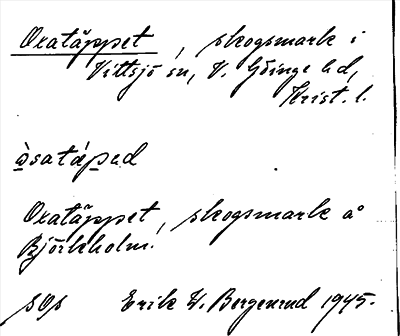 Oxatäppet, skogsmark i
Vittsjö sn, V. Göinge hd,
Krist. l.
Oxatäppet, skogsmark å
Björkholm.
Erik W. Bergenrud 1945.